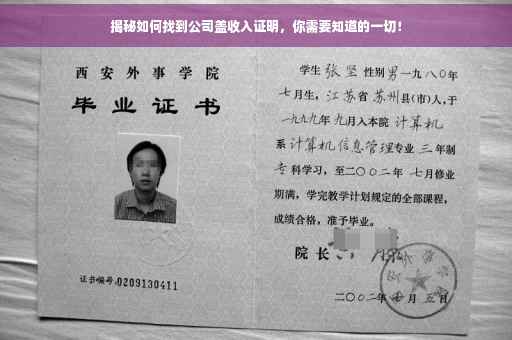 揭秘如何找到公司盖收入证明，你需要知道的一切！
西安外事学院
毕业证书
证书编号:0209130411
学生 张坚 性别 男 一九八〇年
七月生，江苏省苏州县(市)人，于
一九九九年九月入本院 计算机
系 计算机信息管理专业 三年制
专科学习，至二〇〇二年 七月修业
期满，学完教学计划规定的全部课程，
成绩合格，准予毕业。
院长
二〇〇二年 月五日